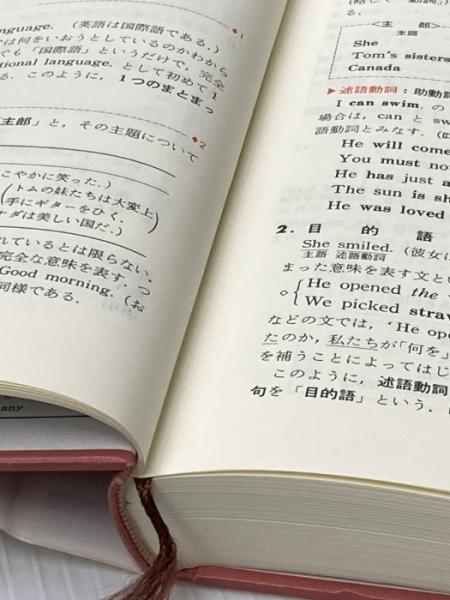 nguage. (英語は国際語である.)
は何をいおうとしているのかわから
でも「国際語」というだけで, 完全
tional language. として初めて1
る. このように, 1つのまとまっ
◆1
主部」と, その主題について
◆2
こやかに笑った.)
(トムの妹たちは大変上
手にギターをひく.
ナダは美しい国だ.)
れているとは限らない.
完全な意味を表す. つ
Good morning. (お
同様である.
any
る.
<主 部>
主語
She
Tom's sisters
Canada
▶述語動詞:助動
I can swim. の
場合は, can と sw
語動詞とみなす.
He will come
You must not
He has just a
The sun is sh
He was loved
2. 目 的 語
She smiled. (彼女は
主語 述語動詞
まった意味を表す文とい
He opened the
We picked straw
などの文では, 'He ope
たのか, 私たちが「何を」
を補うことによってはじ
このように, 述語動詞
句を「目的語」という.